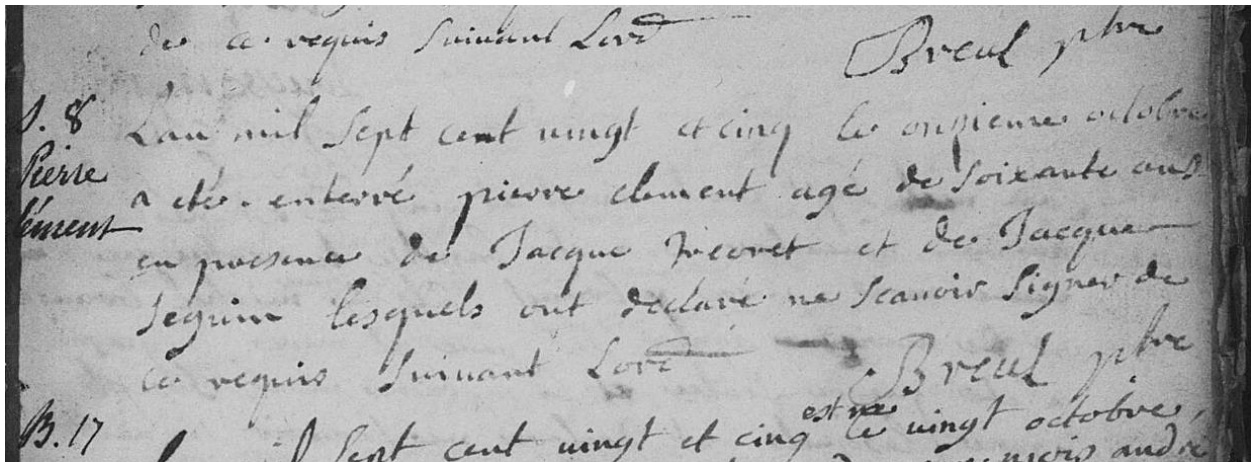 de ce requis suivant Lord
Breul ptre
S. 8
Pierre
Clément
Lan mil sept cent vingt et cinq le onzieme octobre
a eté enterré pierre clement agé de soixante ans
en presence de Jacque Tricoret et de Jacque
seguin lesquels ont declaré ne scavoir signer de
ce requis suivant Lord
Breul ptre
B. 17
mil sept cent vingt et cinq est né le vingt octobre
andré